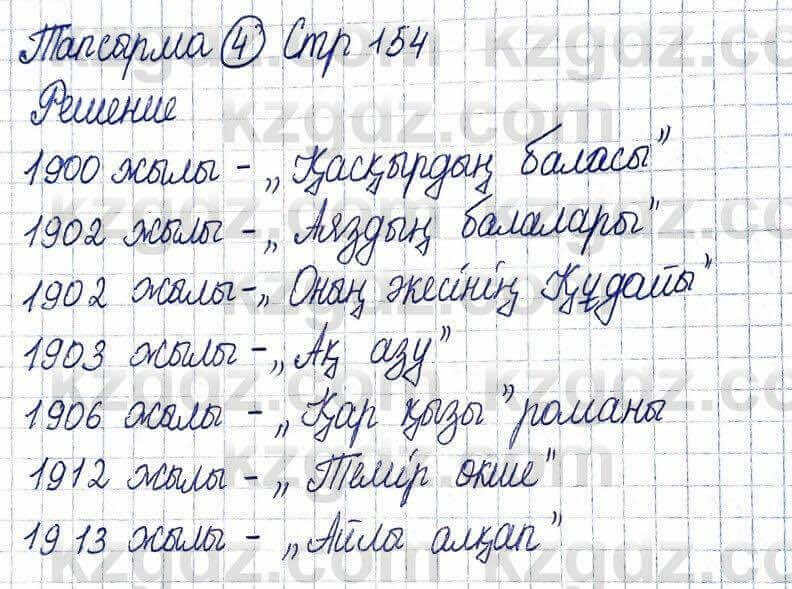 Тапсырма 4 Стр 154
Решение
1900 жылы - „Қасқырдың баласы”
1902 жылы - „Аяздың балалары”
1902 жылы - „Оның әкесінің Құдайы”
1903 жылы - „Ақ азу”
1906 жылы - „Қар қызы” романы
1912 жылы - „Темір өкше”
1913 жылы - „Айлы алқап”